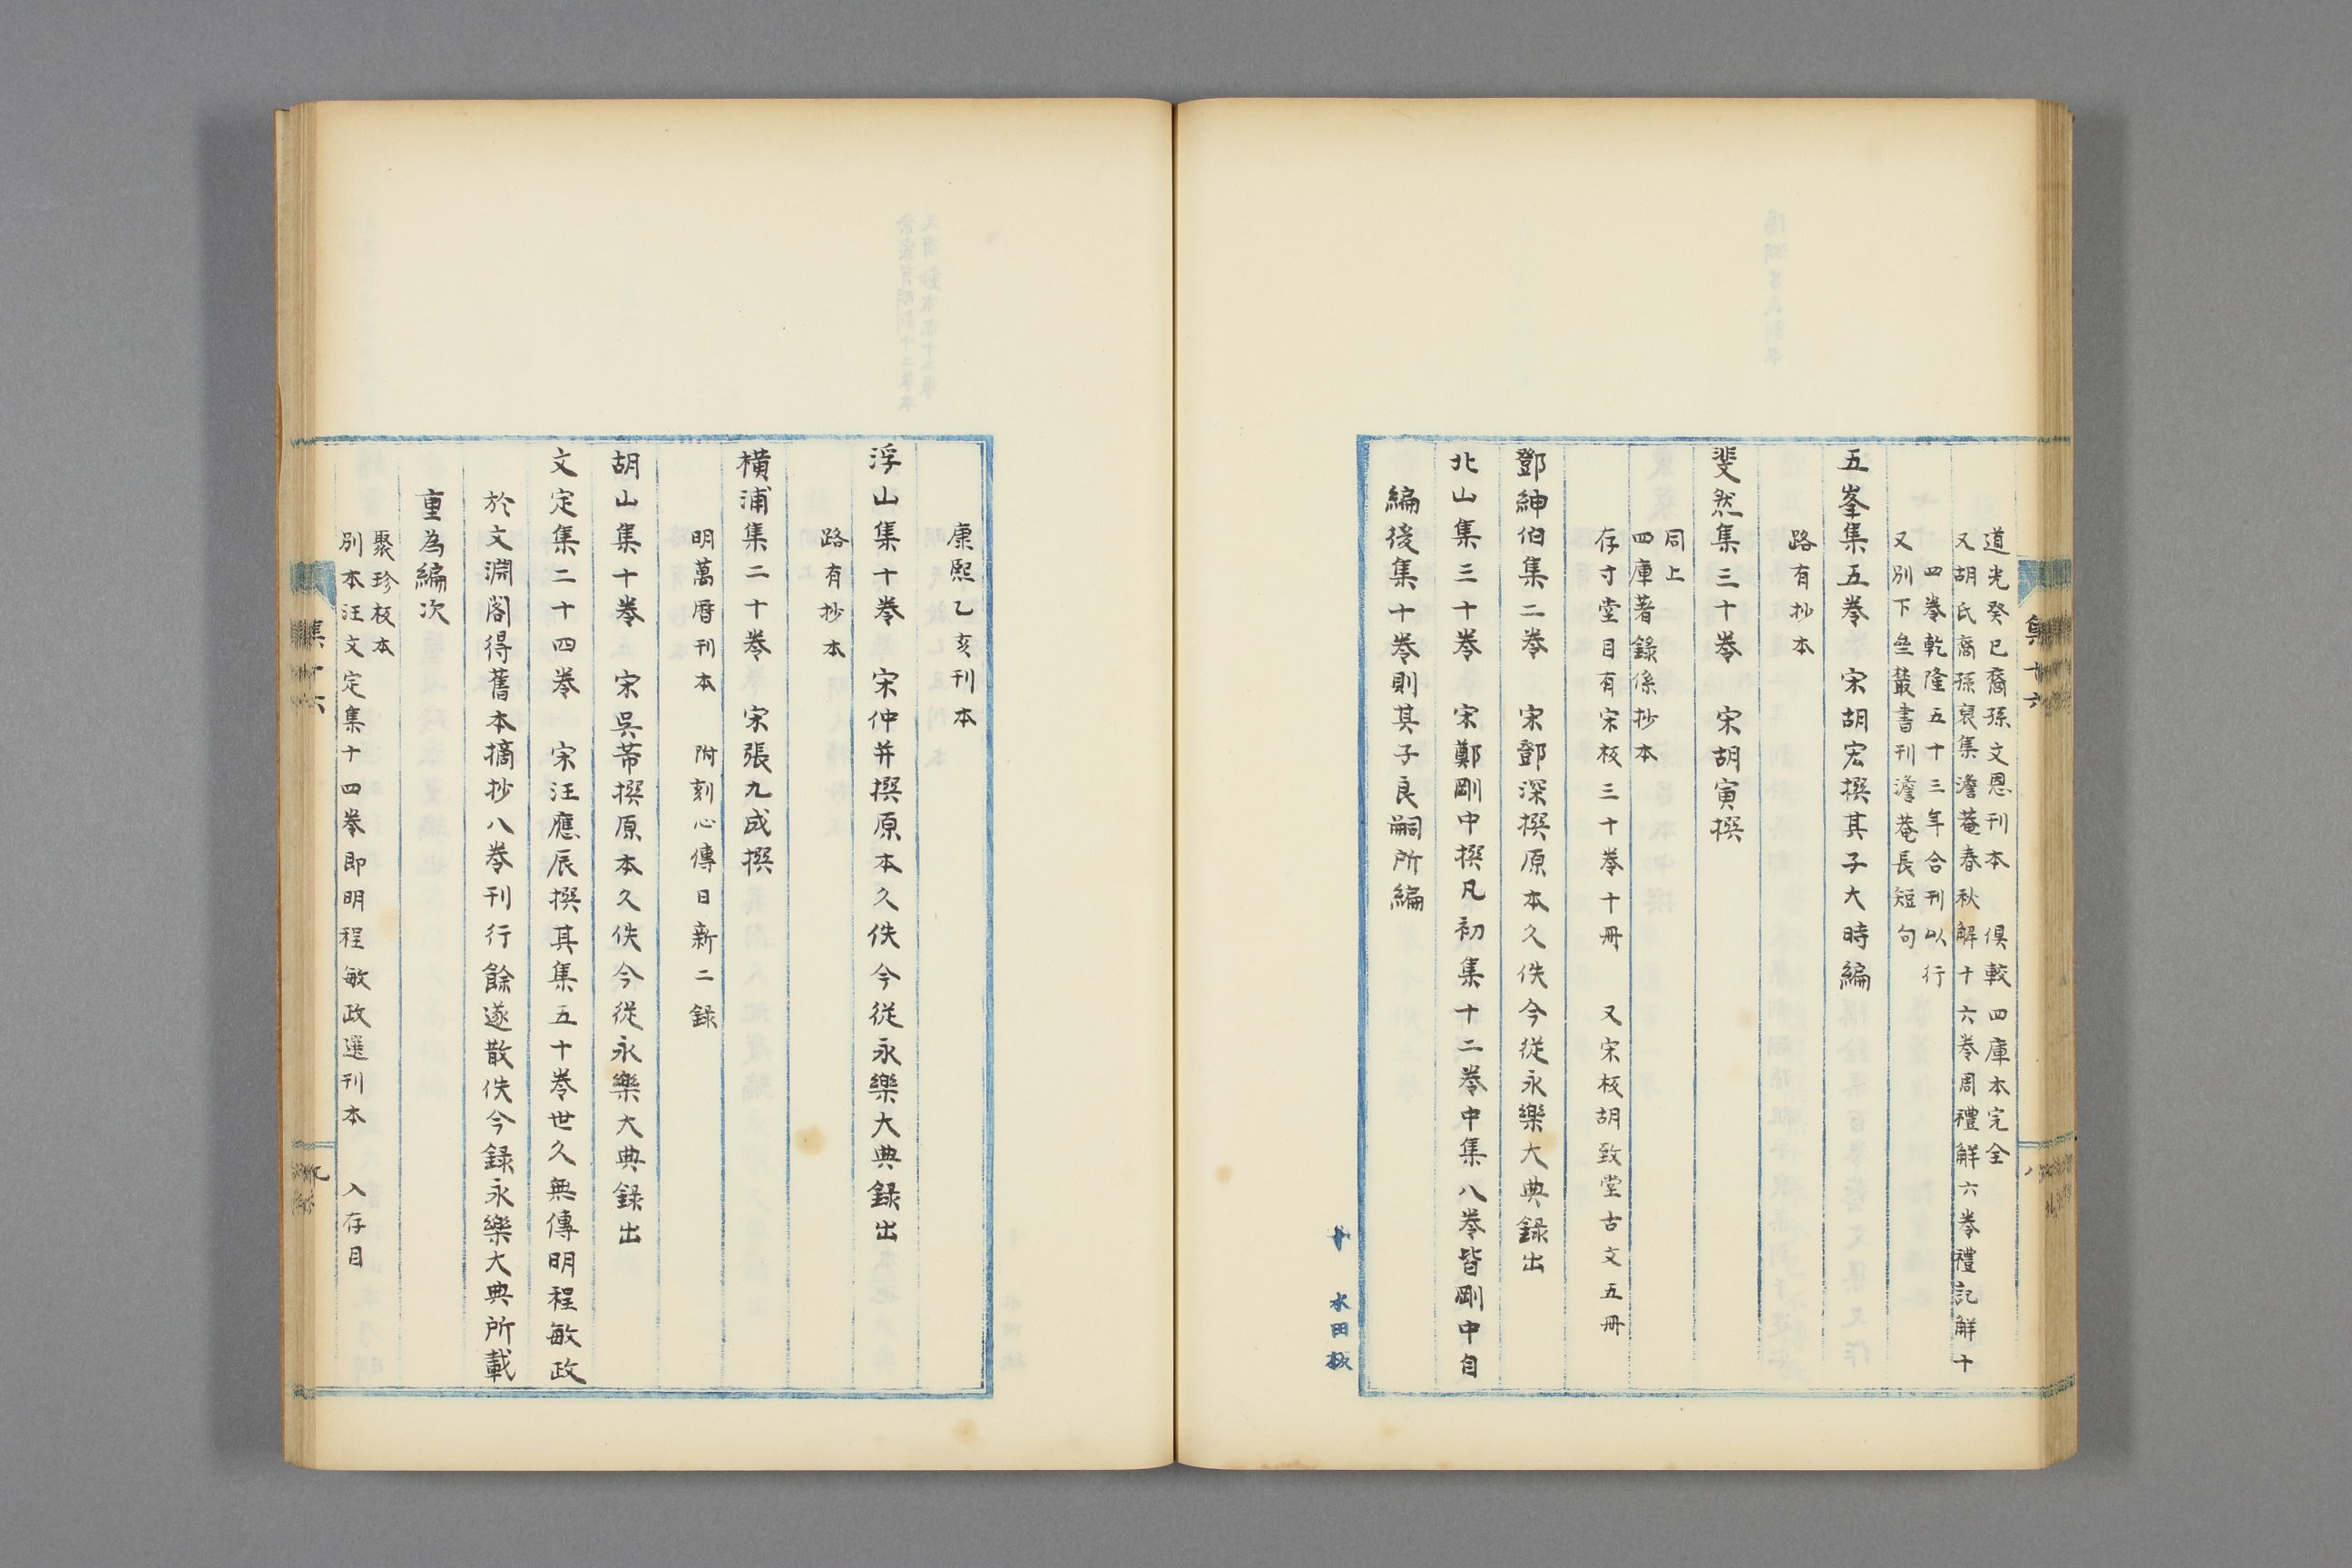 道光癸巳裔孫文恩刊本　俱較四庫本完全
又胡氏裔孫裒集澹菴春秋解十六卷周禮解六卷禮記解十
四卷乾隆五十三年合刊以行
又別下垒叢書刊澹菴長短句
五峯集五卷　宋胡宏撰其子大時編
路有抄本
斐然集三十卷　宋胡寅撰
同上
四庫著錄係抄本
存寸堂目有宋板三十卷十冊　又宋板胡致堂古文五冊
鄧紳伯集二卷　宋鄧深撰原本久佚今從永樂大典録出
北山集三十卷　宋鄭剛中撰凡初集十二卷中集八卷皆剛中自
編後集十卷則其子良嗣所編
集十六
八
水田板
康熙乙亥刊本
浮山集十卷　宋仲并撰原本久佚今從永樂大典録出
路有抄本
橫浦集二十卷　宋張九成撰
明萬曆刊本　附刻心傳日新二錄
胡山集十卷　宋吳芾撰原本久佚今從永樂大典録出
文定集二十四卷　宋汪應辰撰其集五十卷世久無傳明程敏政
於文淵閣得舊本摘抄八卷刊行餘遂散佚今録永樂大典所載
重為編次
聚珍板本
別本汪文定集十四卷即明程敏政選刊本　入存目
集十六
九